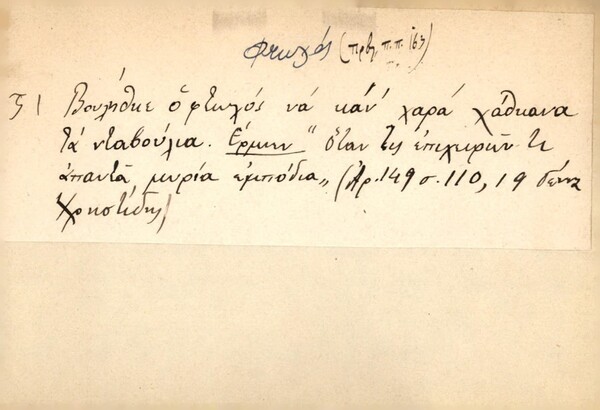 φτωχός (πρβλ. π.π. 163)
51 Βουλήθκε ὁ φτωχός νά κάν' χαρά χάθκανα
τά νταβούλια. Ἑρμην "ὅταν τις ἐπιχειρῶν τι
ἀπαντᾷ μυρία ἐμπόδια„ (Ἀρ. 149 σ. 110, 19
Χρηστίδης)